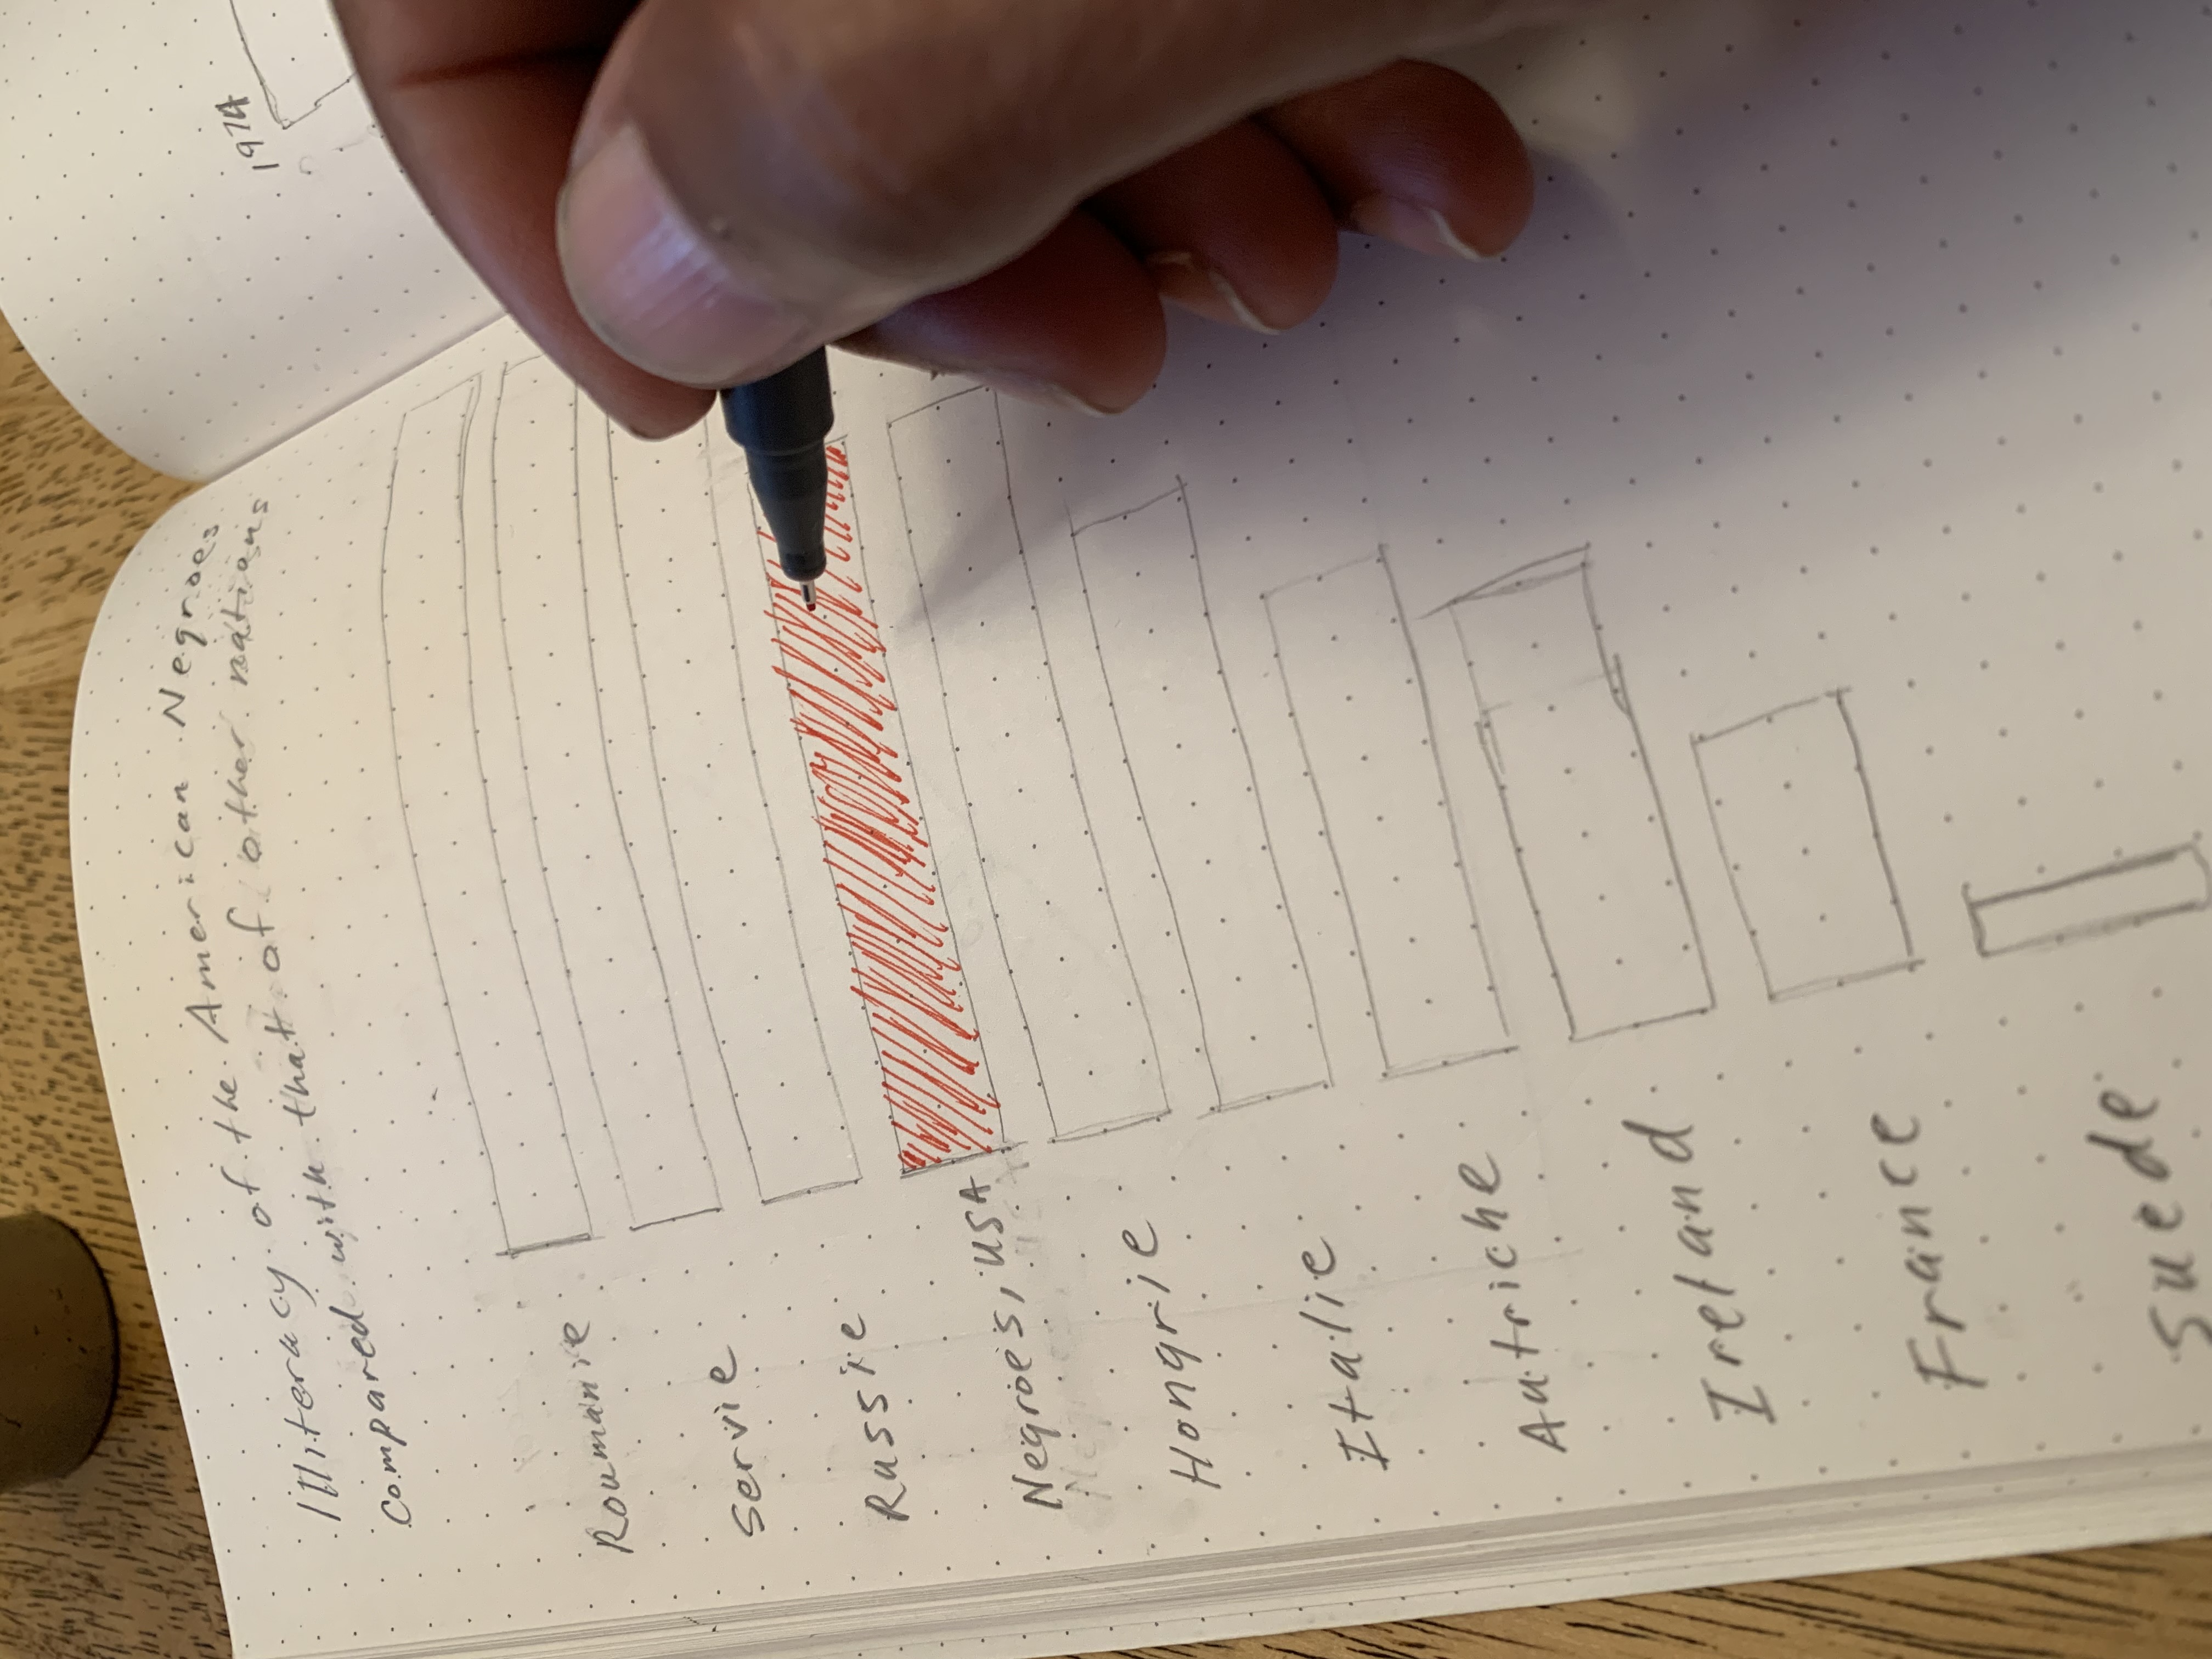 Illiteracy of the American Negroes
compared with that of other nations
1974
Roumanie
Servie
Russie
Negroes, USA
Hongrie
Italie
Autriche
Ireland
France
Suede